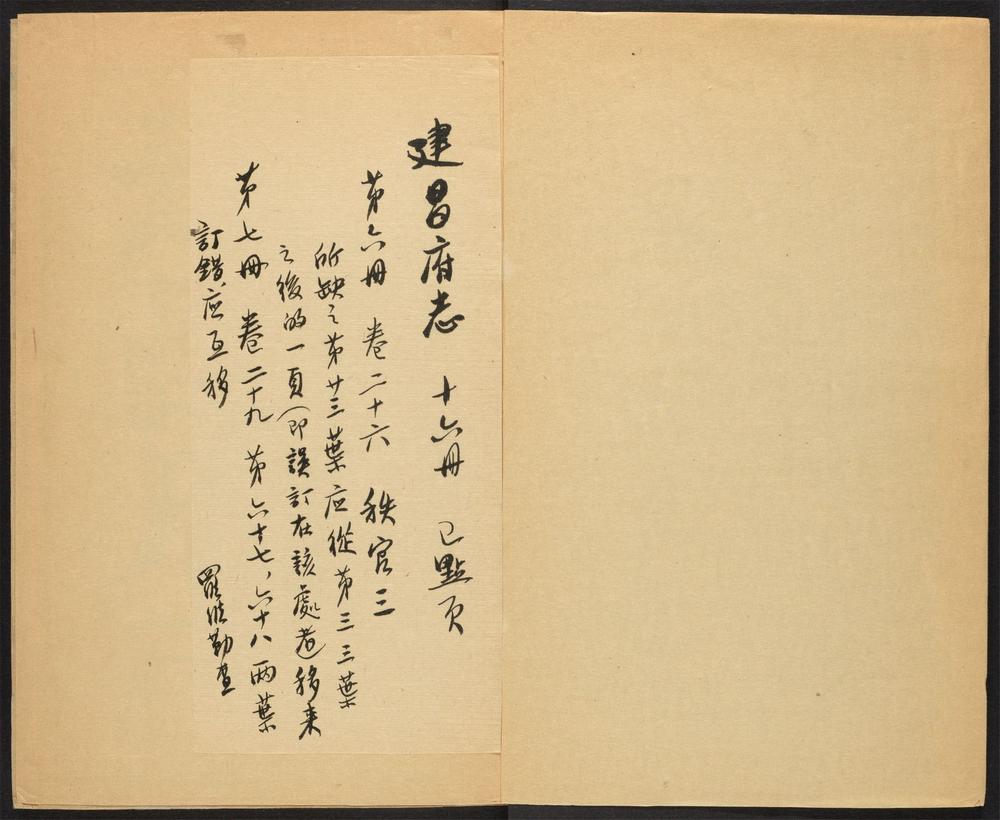 建昌府志 十六冊 已點頁
第六冊 卷二十六 秩官三
所缺之第廿三葉应從第三三葉
之後的一頁(即誤訂在該處者移来
第七冊 卷二十九 第六十七,六十八兩葉
訂錯,应互移
羅 勤查